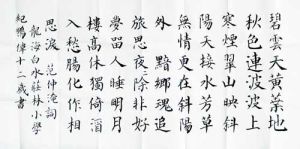 碧雲天黃葉地
秋色連波波上
寒煙翠山映斜
陽天接水芳草
無情更在斜陽
外 黯鄉魂追
旅思夜々除非好
夢留人睡明月
樓高休獨倚酒
入愁腸化作相
思淚 范仲淹詞
龍海白水莊林小學
紀偉十二歲書